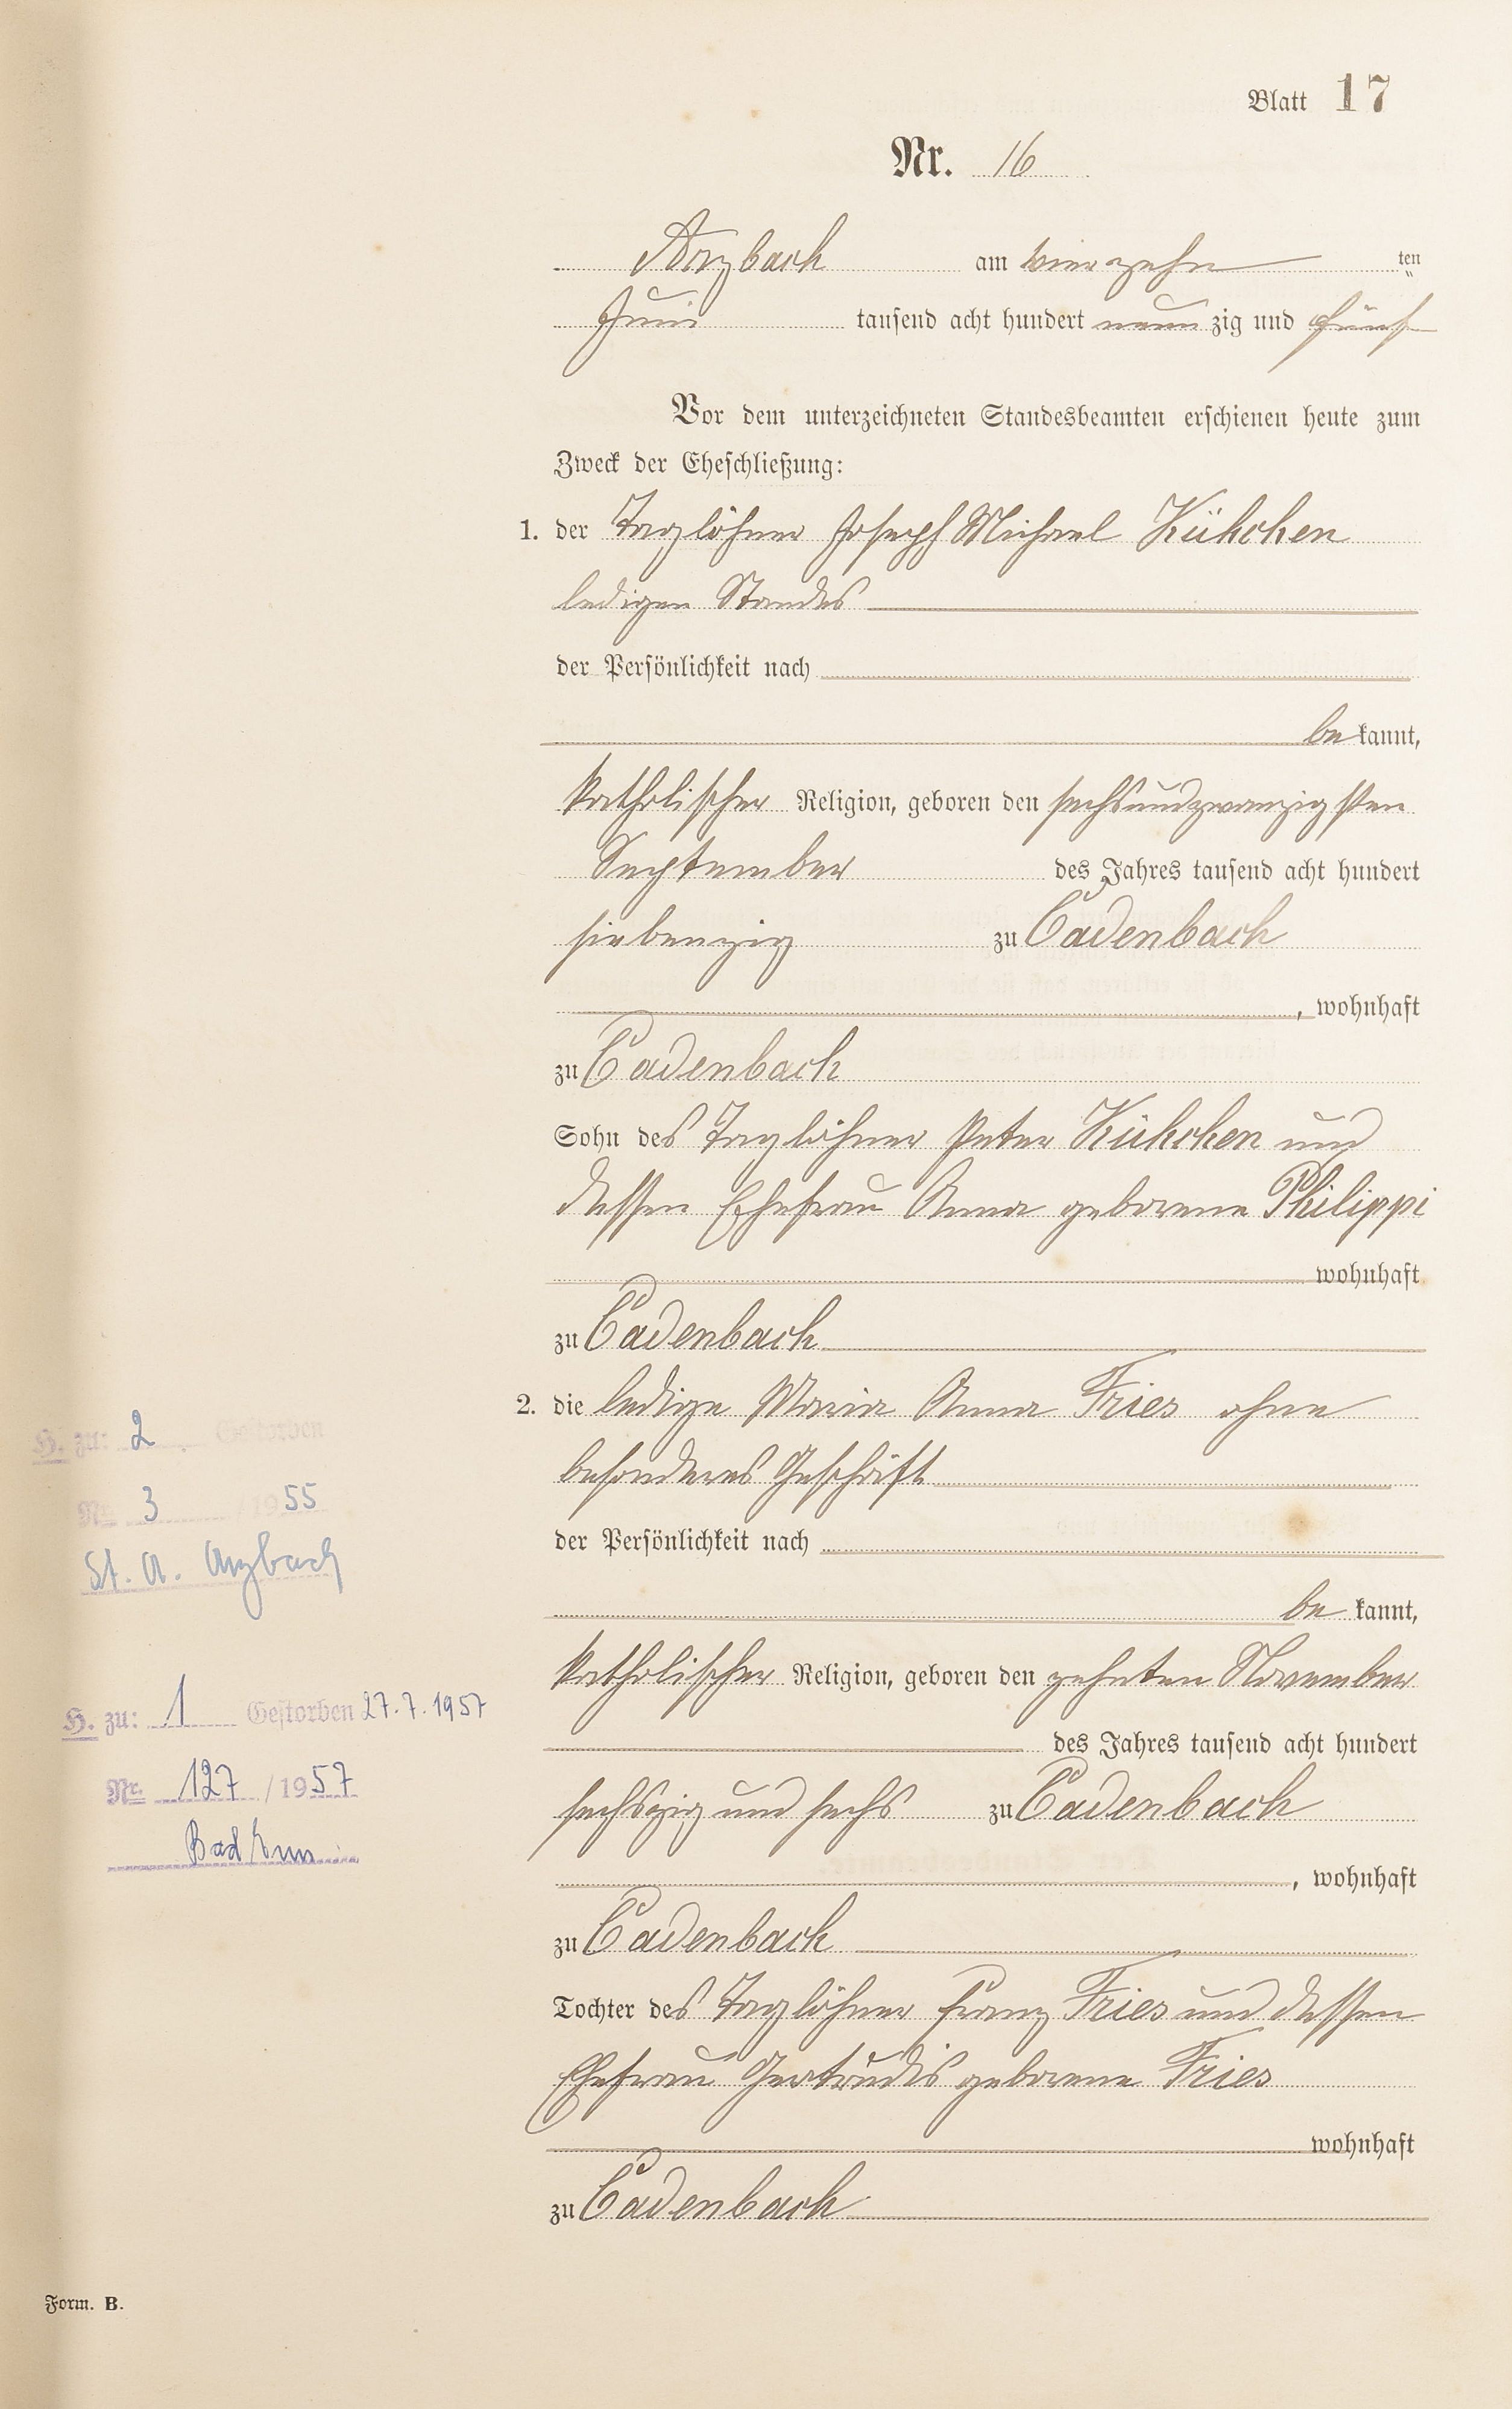 Blatt 17
Nr. 16
Arzbach am vierzehn ten
Juni tausend acht hundert neun zig und fünf
Vor dem unterzeichneten Standesbeamten erschienen heute zum
Zweck der Eheschließung:
1. der Taglöhner Joseph Michael Kühchen
ledigen Standes
der Persönlichkeit nach
be kannt,
katholischer Religion, geboren den sechsundzwanzigsten
September des Jahres tausend acht hundert
siebenzig zu Cadenbach
, wohnhaft
zu Cadenbach
Sohn des Taglöhner Peter Kühchen und
dessen Ehefrau Anna geborene Philippi
wohnhaft
zu Cadenbach
2. die ledige Maria Anna Fries ohne
besonderes Geschäft
der Persönlichkeit nach
be kannt,
katholischer Religion, geboren den zehnten November
des Jahres tausend acht hundert
sechszig und sechs zu Cadenbach
, wohnhaft
zu Cadenbach
Tochter des Taglöhner Franz Fries und dessen
Ehefrau Gertrudis geborene Fries
wohnhaft
zu Cadenbach
H. zu: 2 Gestorben
Nr. 3 / 1955
St. A. Arzbach
H. zu: 1 Gestorben 27.7.1957
Nr. 127 / 1957
Bad Ems
Form. B.